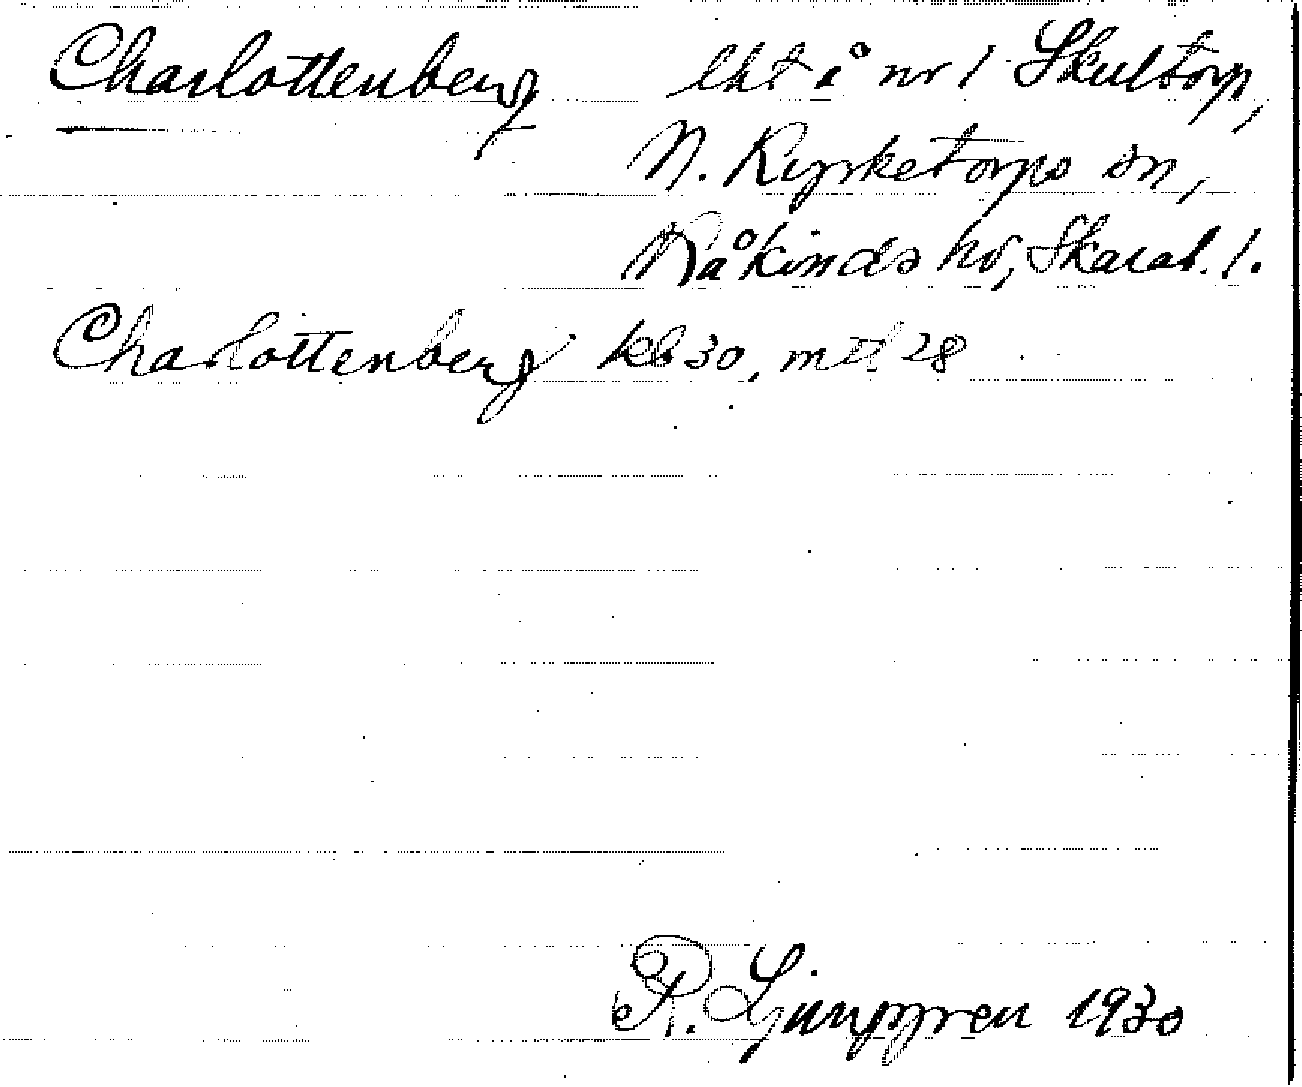 Charlottenberg lht å nr 1 Skultorp,
N. Kyrketorps sn,
Kåkinds hd, Skarab. l.
Charlottenberg kb 30, mtl 28
R. Ljunggren 1930